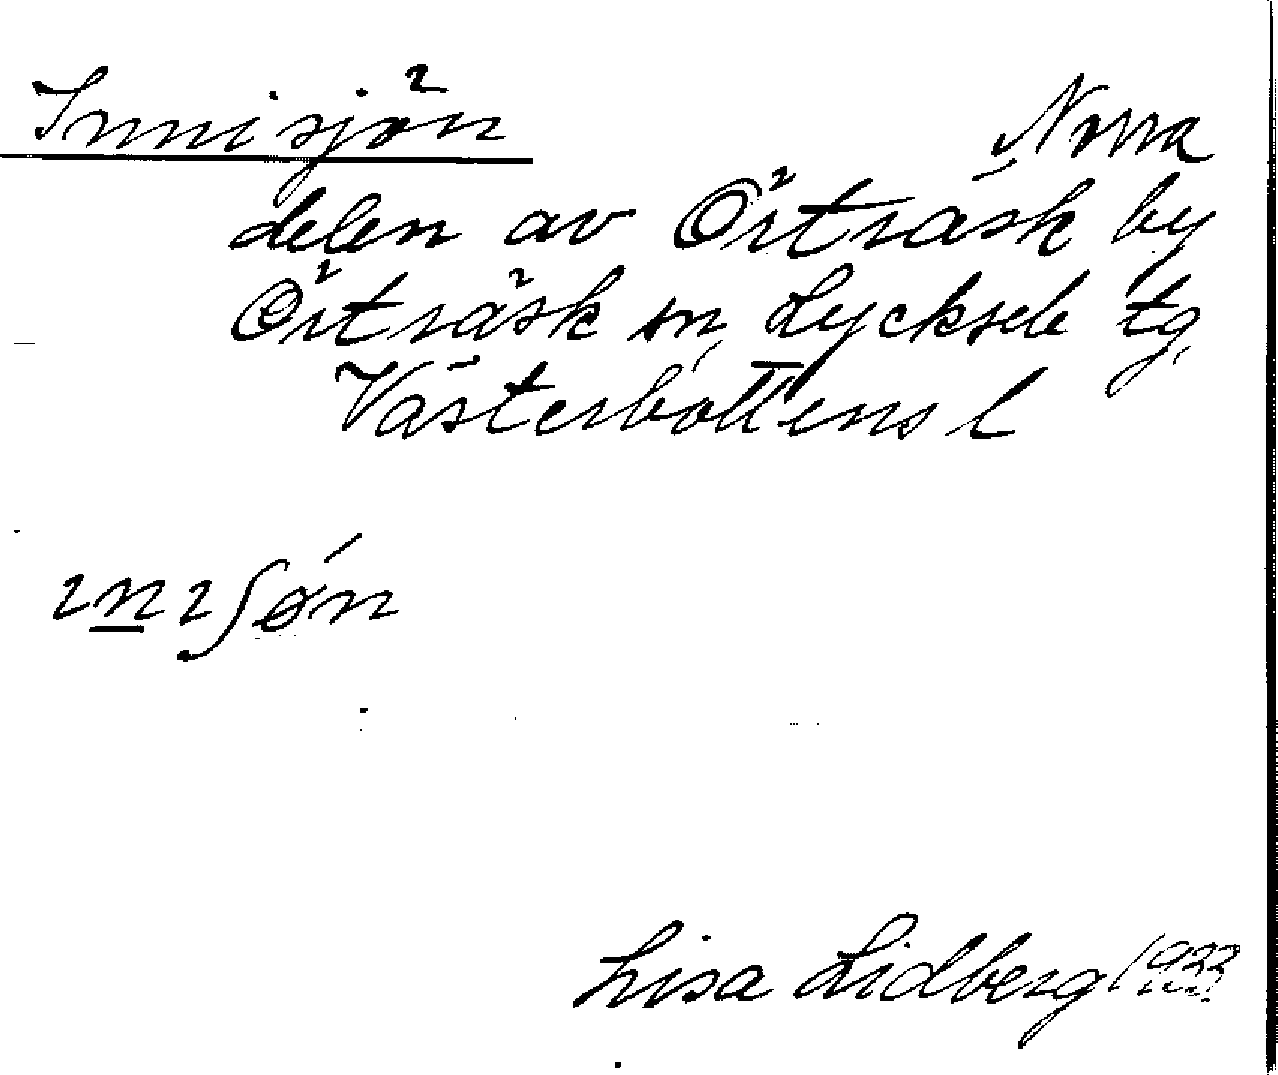 Innisjön Norra
delen av Örträsk by
Örträsk sn, Lycksele tg,
Västerbottens l
ɪnɪʃøn
Lisa Lidberg 1933